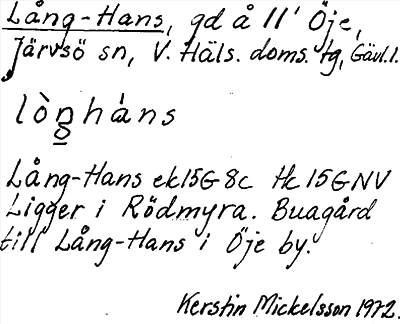 Lång-Hans, gd å 11' Öje,
Järvsö sn, V. Häls. doms. tg, Gävl. l.
lòn̲g̲hàns
Lång-Hans ek 15G 8c tk 15G NV
Ligger i Rödmyra. Buagård
till Lång-Hans i Öje by.
Kerstin Mickelsson 1972.